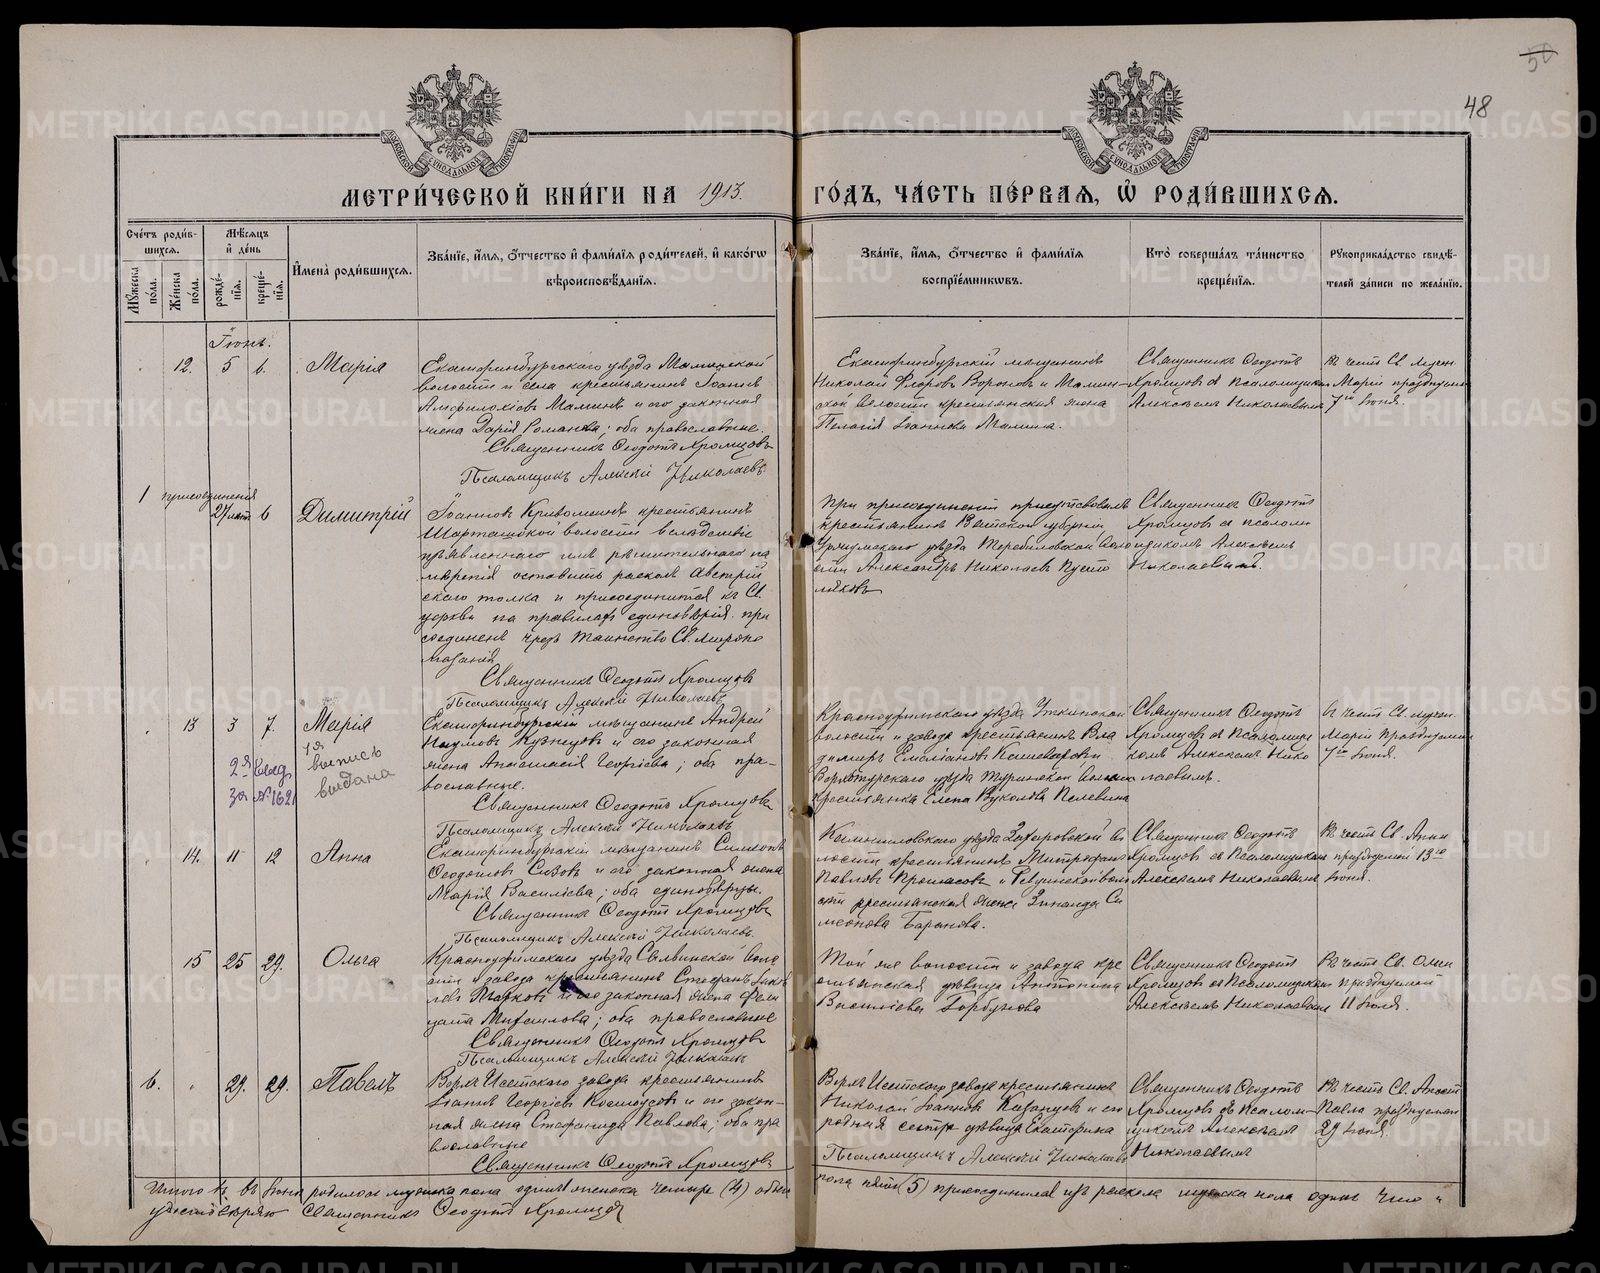 50
48
МЕТРИ́ЧЕСКОЙ КНИ́ГИ НА 1913. ГО́ДЪ, ЧА́СТЬ ПЕ́РВАЯ, Ѡ РОДИ́ВШИХСЯ.
Сче́тъ роди́вшихся.
Му́жеска по́ла.
Же́нска по́ла.
Мѣ́сяцъ и де́нь
рожде́нія.
креще́нія.
Имена̀ роди́вшихся.
Зва́ніе, и́мя, о́тчество и фами́лія роди́телей, и како́гѡ
вѣроисповѣ́данія.
Зва́ніе, и́мя, о́тчество и фами́лія
воспріе́мниковъ.
Кто̀ соверша́лъ та́инство
креще́нія.
Рукоприкла́дство свидѣ́-
телей за́писи по жела́нію.
Іюнь.
12. 5 6. Марія
Екатеринбургскаго уѣзда Маминской
волости и села крестьянинъ Іоаннъ
Амфилохіевъ Маминъ и его законная
жена Дарія Романова; оба православные.
Священникъ Ѳеодотъ Хромцовъ
Псаломщикъ Алексій Николаевъ.
Екатеринбургскій мещанинъ
Николай Воронов и Мамин-
ской волости крестьянская жена
Пелагія Іоаннова Мамина.
Священникъ Ѳеодотъ
Хромцовъ съ Псаломщикомъ
Алексѣемъ Николаевымъ
Въ честь Св. мучен.
Маріи празднуемой
7го Іюня.
1 присоединенія
27 лѣтъ 6 Димитрій
Іоанновъ крестьянинъ
Шарташской волости вслѣдствіе
изъявленнаго имъ рѣшительнаго на
мѣренія оставить расколъ Австрій
скаго толка и присоединиться къ Св.
церкви на правилахъ единовѣрія при
соединенъ чрезъ таинство Св. мѵропо
мазанія.
Священникъ Ѳеодотъ Хромцовъ
Псаломщикъ Алексій Николаевъ
При присоединеніи присутствовалъ
крестьянинъ Вятской губерніи
Уржумскаго уѣзда воло
сти Александръ Николаевъ Пусто
Священникъ Ѳеодотъ
Хромцовъ съ псалом
щикомъ Алексѣемъ
Николаевымъ.
13 3 7. Марія
1я
выпись
выдана
2я выд.
за № 1621
Екатеринбургскій мещанинъ Андрей
Наумовъ Кузнецовъ и его законная
жена Анастасія Георгіева; оба пра-
вославные.
Священникъ Ѳеодотъ Хромцовъ
Псаломщикъ Алексій Николаевъ
Красноуфимскаго уѣзда Уткинской
волости и завода крестьянинъ Вла
димиръ Емеліановъ
Верхотурскаго уѣзда Туринской волости
крестьянка Елена Вуколова Пелевина
Священникъ Ѳеодотъ
Хромцовъ съ Псаломщи
комъ Алексѣемъ Нико
лаевымъ.
Въ честь Св. мучен.
Маріи празднуемой
7го Іюня.
14. 11 12 Анна
Екатеринбургскій мещанинъ Симеонъ
Ѳедотовъ Сизовъ и его законная жена
Марія Васильева; оба единовѣрцы.
Священникъ Ѳеодотъ Хромцовъ
Псаломщикъ Алексій Николаевъ.
Камышловскаго уѣзда Захаровской во
лости крестьянинъ Митрофанъ
Павловъ и
сти крестьянская жена Зинаида Си
меонова Баранова.
Священникъ Ѳеодотъ
Хромцовъ съ Псаломщикомъ
Алексѣемъ Николаевымъ
Въ честь Св. Анны
празднуемой 13го
Іюня.
15 25 29. Ольга
Красноуфимскаго уѣзда Сылвинской воло
сти и завода крестьянинъ Стефанъ
и его законная жена
Михаилова; оба православные
Священникъ Ѳеодотъ Хромцовъ
Псаломщикъ Алексій Николаевъ
Той же волости и завода кре
стьянская дѣвица Антонина
Васильева Горбунова
Священникъ Ѳеодотъ
Хромцовъ съ Псаломщикомъ
Алексѣемъ Николаевымъ
Въ честь Св. Ольги
празднуемой
11 Іюля.
6. 29. 29. Павелъ
Верхъ Исетскаго завода крестьянинъ
Іоаннъ Георгіевъ и его закон-
ная жена Стефанида Павлова; оба пра
вославные
Священникъ Ѳеодотъ Хромцовъ
Верхъ Исетскаго завода крестьянинъ
Николай Іоанновъ Казанцовъ и его
родная сестра дѣвица Екатерина
Псаломщикъ Алексій Николаевъ
Священникъ Ѳеодотъ
Хромцовъ съ Псалом-
щикомъ Алексѣемъ
Николаевымъ
Въ честь Св. Апост.
Павла празднуемаго
29 Іюня.
Итого въ Іюнѣ родилось мужеска пола одинъ женска четыре (4) обоего пола пять (5) присоединился изъ раскола мужска пола одинъ
удостовѣряю Священникъ Ѳеодотъ Хромцовъ